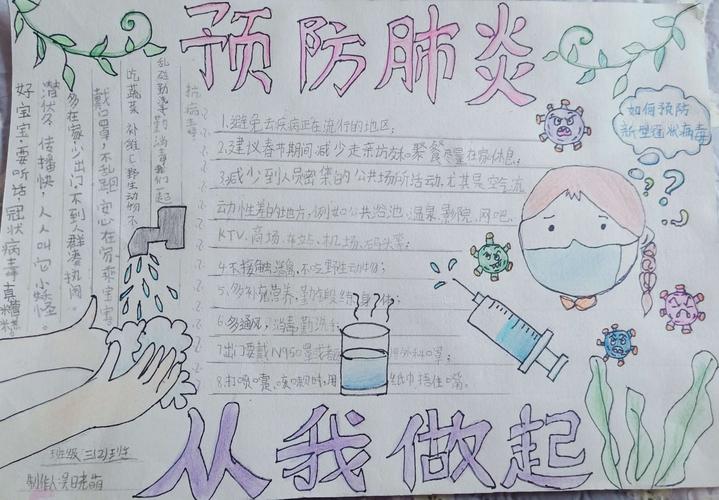 预防肺炎
好宝宝,要听话 冠状病毒真糟糕。
潜伏久 传播快,人人叫它小妖怪。
多在家 少出门 不到人群凑热闹。
戴口罩,不乱跑 安心在家乖宝宝
吃蔬菜 补维C 野生动物不
乱碰勤洗手勤消毒我们一起
抗病毒
1.避免去疾病正在流行的地区;
2.建议春节期间减少走亲访友和聚餐尽量在家休息;
3.减少到人员密集的公共场所活动,尤其是空气流
动性差的地方,例如公共浴池、温泉、影院、网吧、
KTV、商场、车站、机场、码头等;
4.不接触
不吃野生动物;
5.多补充营养,勤锻练身体;
6.多通风,消毒勤洗手
7.出门要戴N950罩或者
8.打喷嚏、咳嗽时,用
纸巾捂住口
如何预防
新型冠状病毒
从我做起
班级三(2)班
制作人:吴